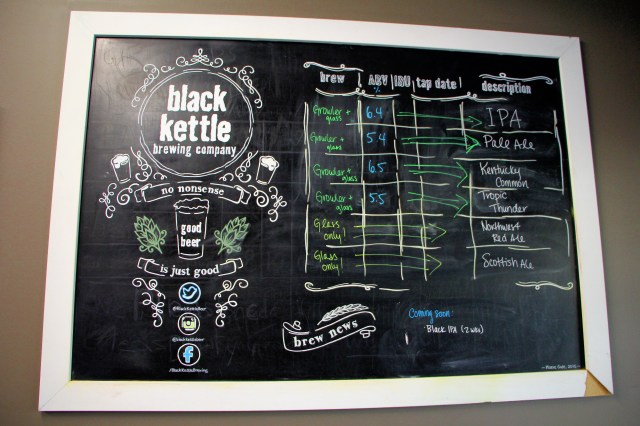 black
kettle
brewing company
no nonsense
good
beer
is just good
brew ABV IBU tap date description
%
Growler + glass 6.4 IPA
Growler + glass 5.4 Pale Ale
Growler + glass 6.5 Kentucky Common
Growler + glass 5.5 Tropic Thunder
Glass only! Northwest Red Ale
Glass only! Scottish Ale
brew news
Coming soon:
· Black IPA (2 wks)